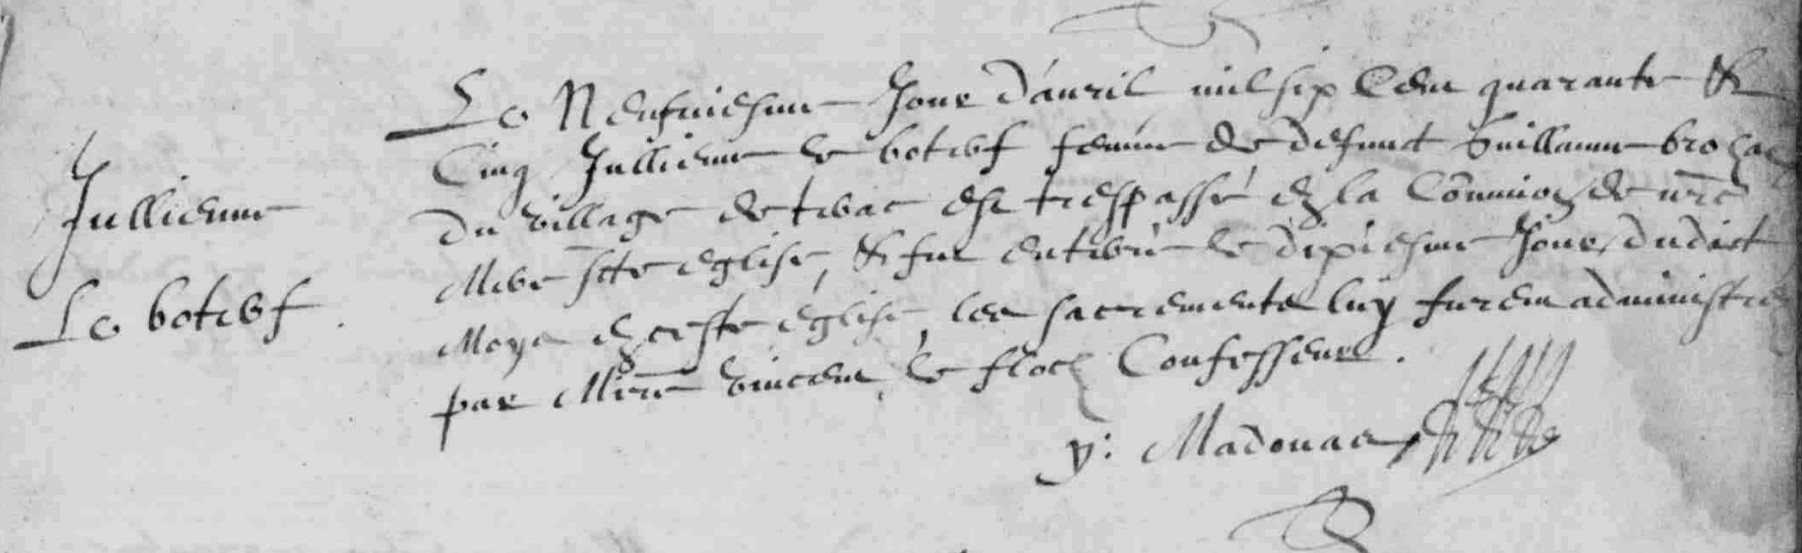 Jullienne
Le boterf
Le Neufuiesme Jour d'auril mil six Cent quarante &
Cinq Jullienne le boterf femme de defunct Guillaume
Du village de est trespassé en la Co͞mmion de n͞re
Mere s͞cte eglise, & fut enterré le dixiesme Jour dudict
Moys en ceste église, les sacrements luy furent administré
par Missire Vincent le floch Confesseur.
y: Madouas